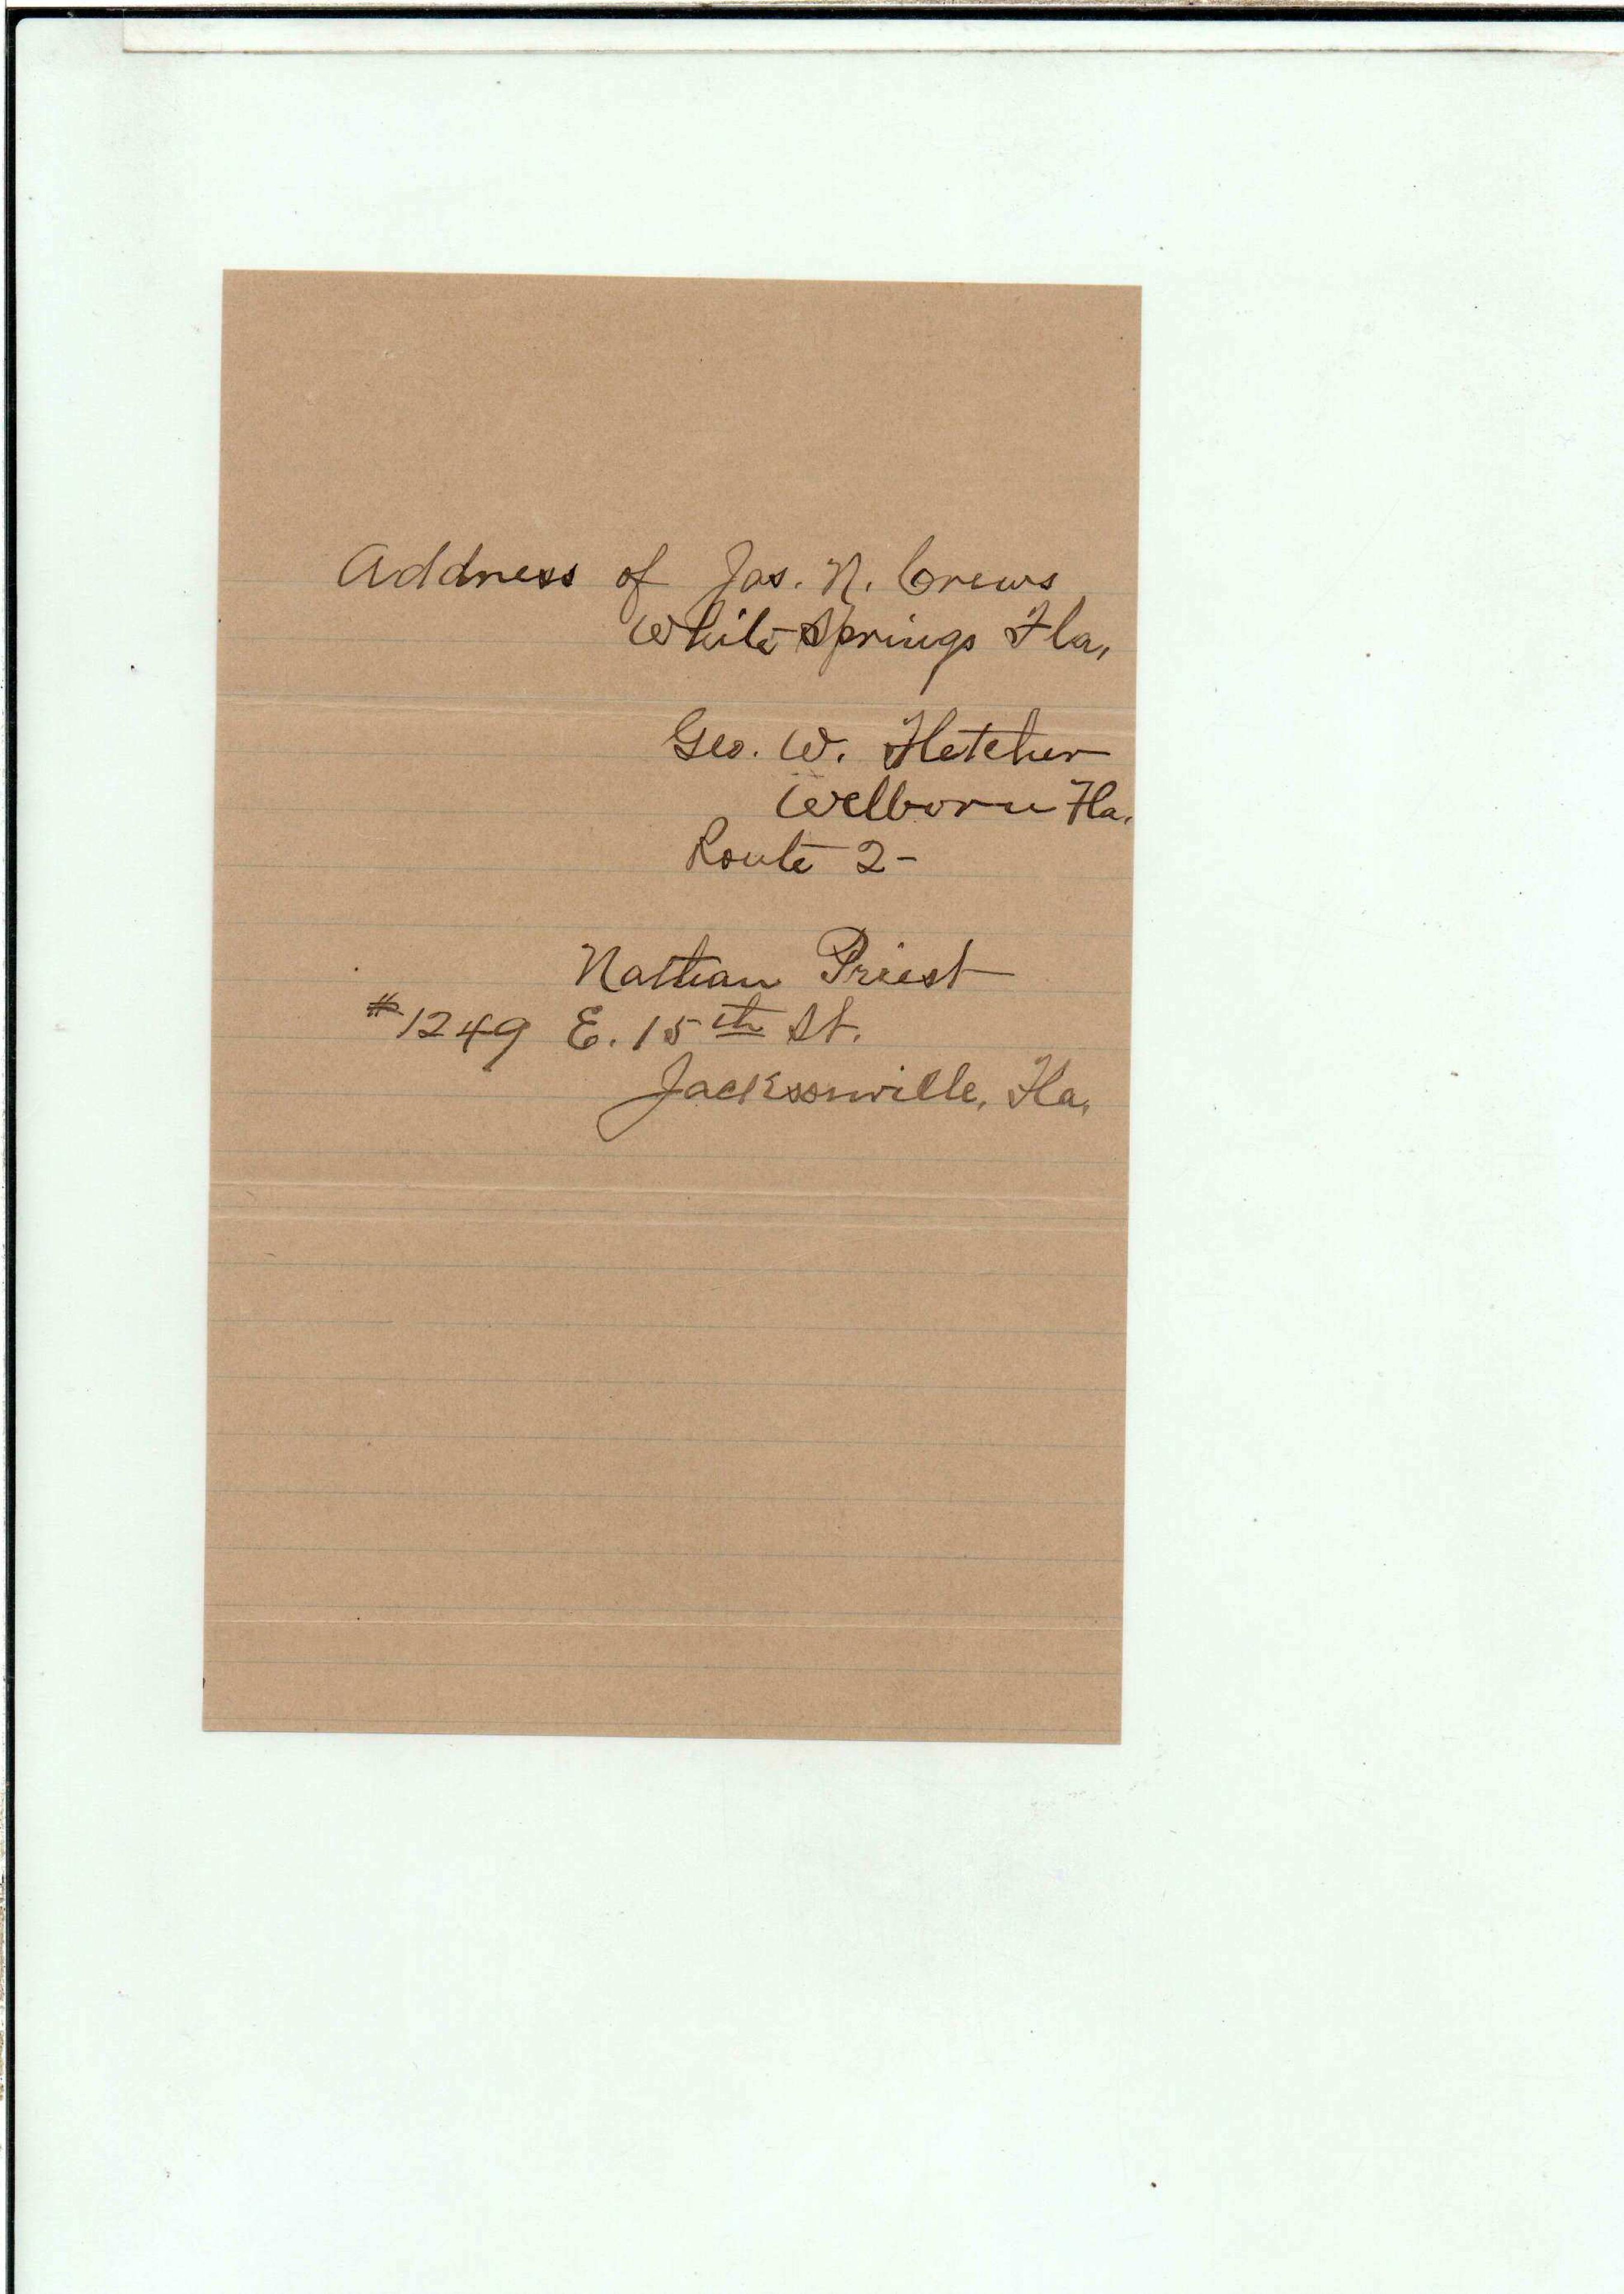 Address of Jas. N. Crews
White Springs Fla.
Geo. W. Fletcher
Welborn Fla.
Route 2-
Nathan Priest
#1249 E. 15th St.
Jacksonville, Fla.